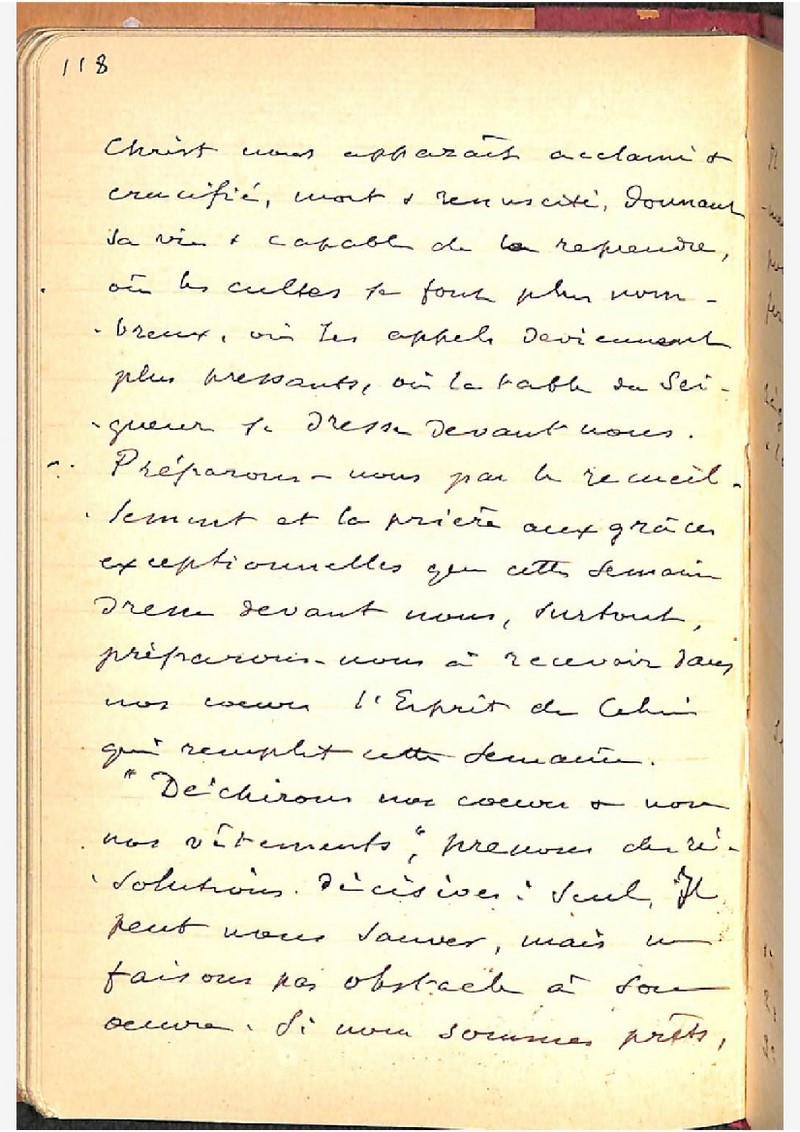 118
Christ nous apparaît acclamé &
crucifié, mort & ressuscité, donnant
sa vie & capable de la reprendre,
où les cultes se font plus nom-
-breux, où les appels deviennent
plus pressants, où la table du Sei-
-gneur se dresse devant nous.
Préparons-nous par le recueil-
lement et la prière aux grâces
exceptionnelles que cette semaine
dresse devant nous, surtout,
préparons-nous à recevoir dans
nos coeurs l'Esprit de Celui
qui remplit cette semaine.
"Déchirons nos coeurs & non
nos vêtements", prenons des ré-
solutions décisives : seul, Il
peut nous sauver, mais ne
faisons pas obstacle à son
oeuvre. Si nous sommes prêts,